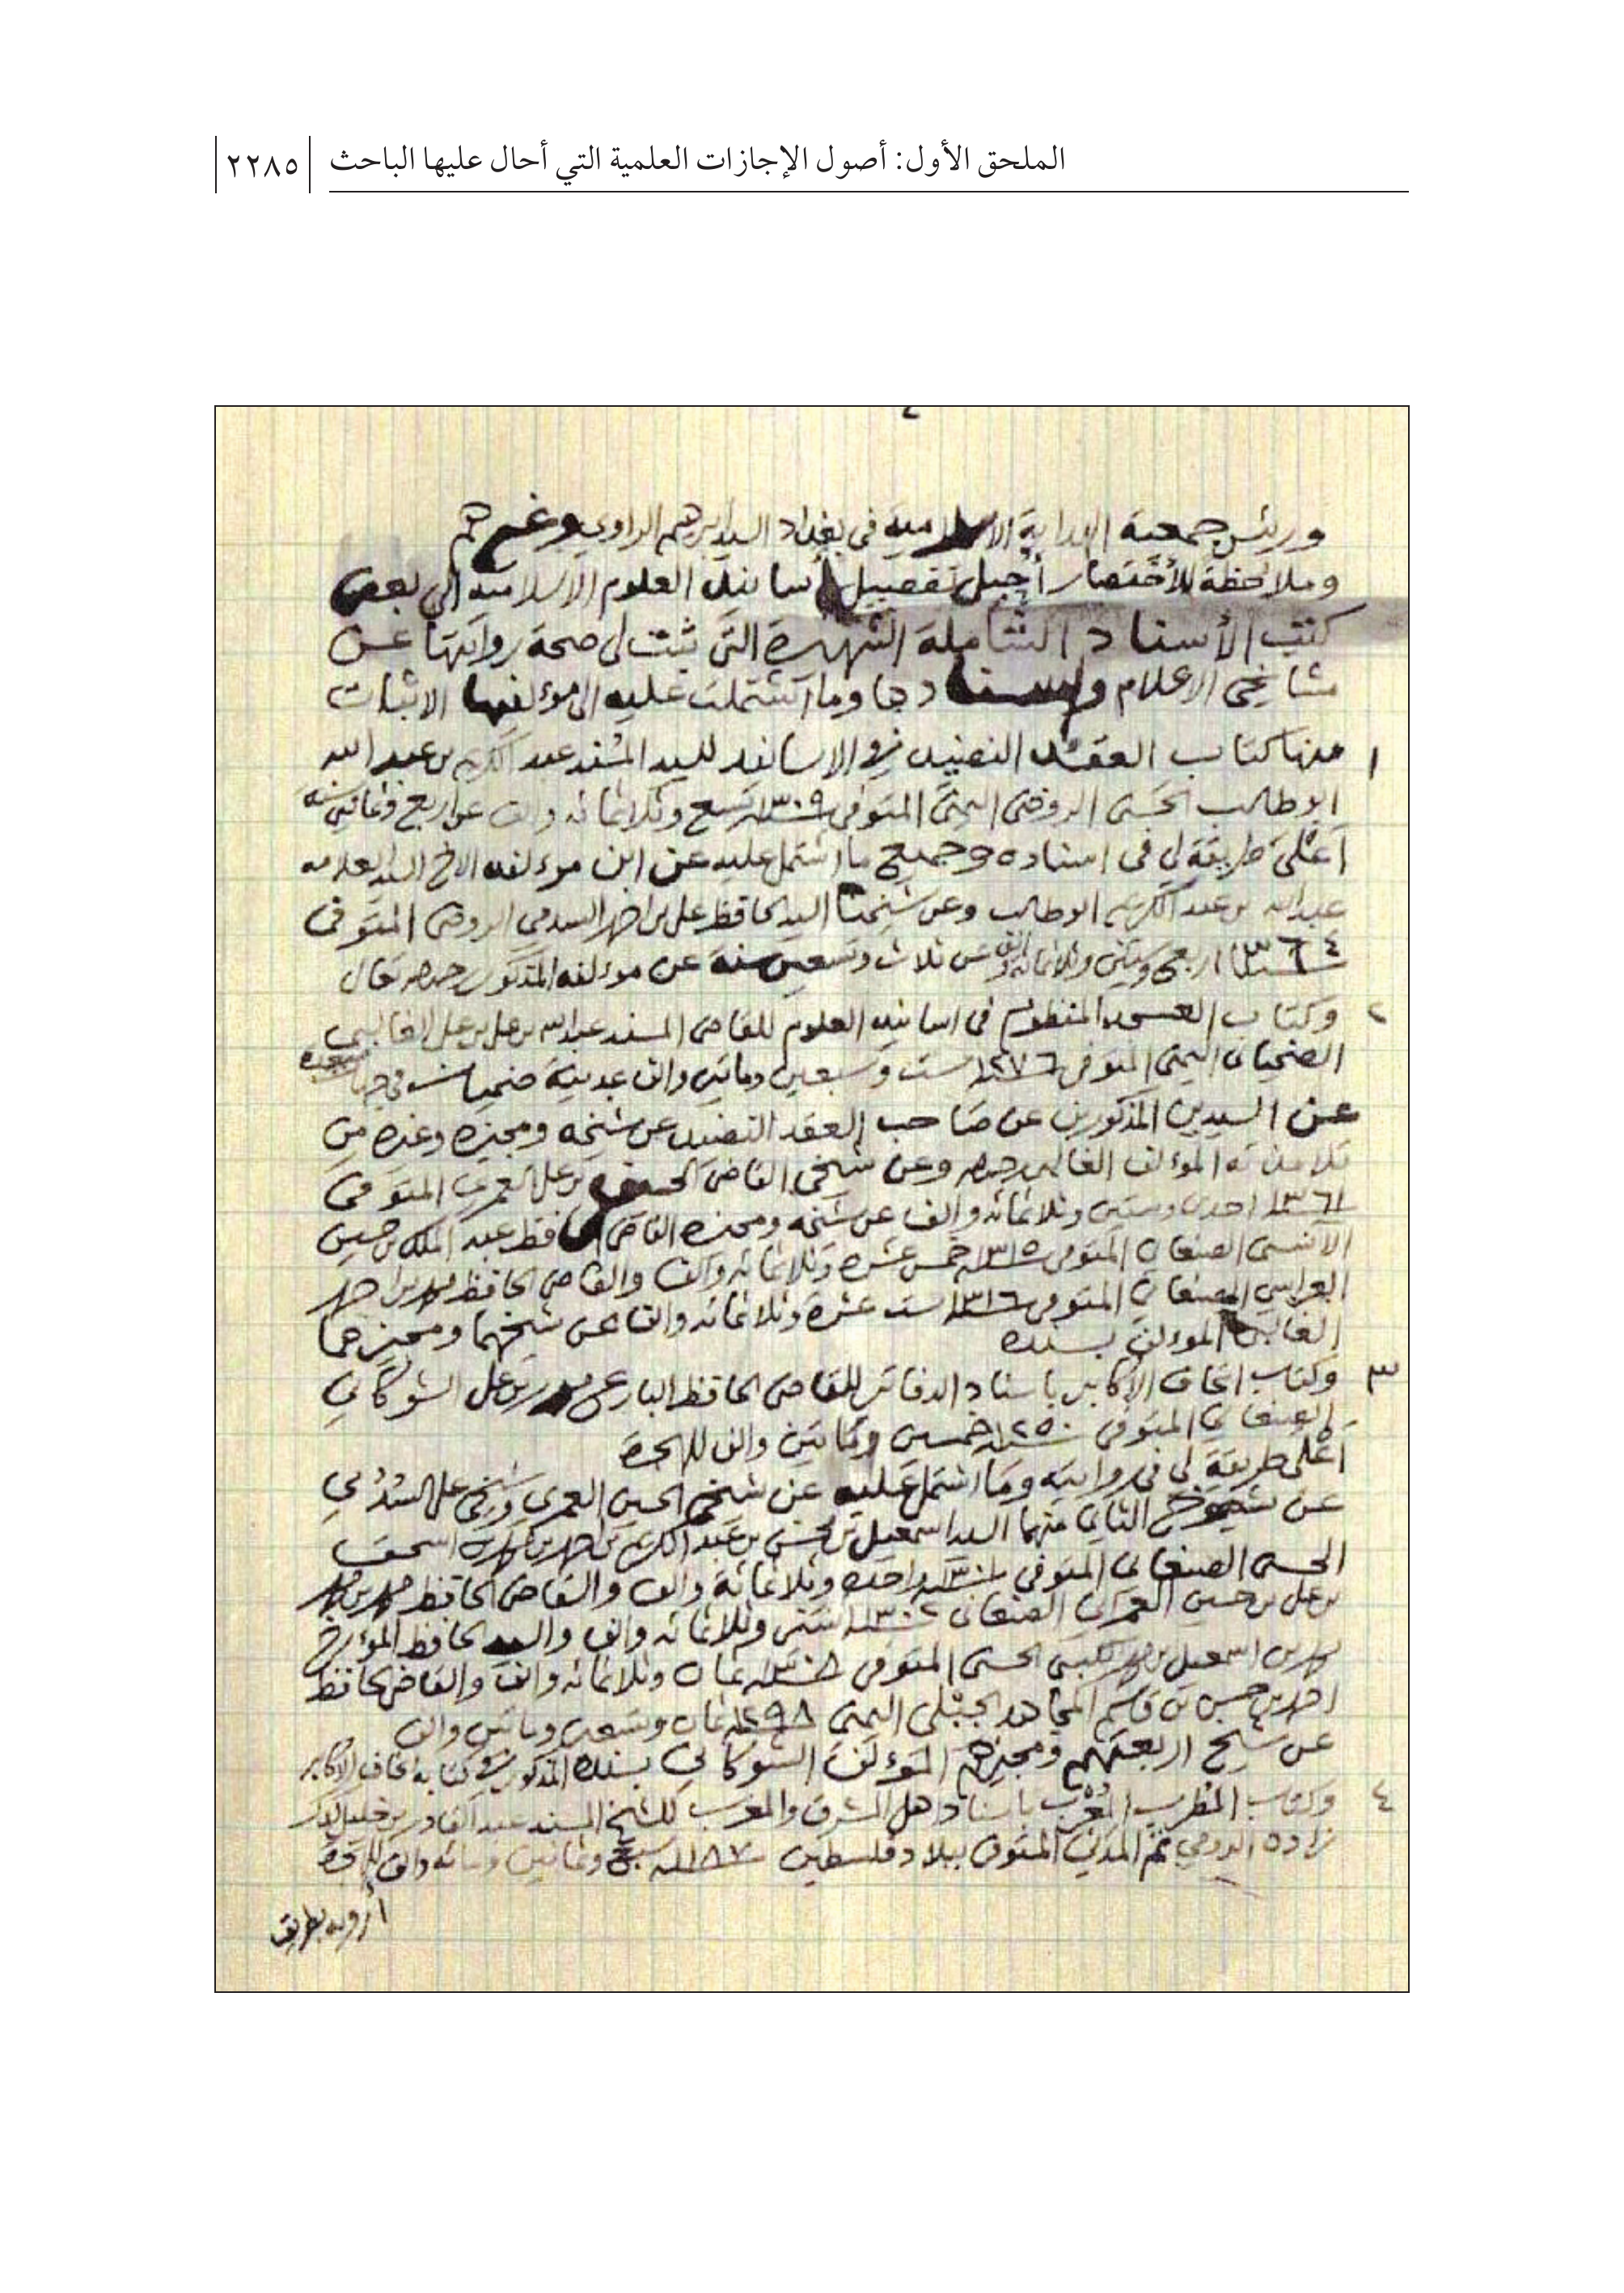 الملحق الأول: أصول الإجازات العلمية التي أحال عليها الباحث ٢٢٨٥
ورئيس جمعية الهداية الاسلامية في بغداد السيد ابرهيم الراوي وغيرهم
وملاحظة للأختصار أحيل تفصيل أسانيد العلوم الاسلاميه الى بعض
كتب الأسناد الشاملة الشهيرة التي ثبت لي صحة روايتها عن
مشايخي الاعلام واسنادها وما اشتملت عليه الى مؤلفيها الاثبات
١ منها كتاب العقد النضيد في الاسانيد للسيد المسند عبد الكريم بن عبد الله
ابو طالب الحسني الروضي اليمني المتوفى ١٣٠٩ تسع وثلاثمائه والف عن اربع وثمانين سنه
أعلى طريقة لي في اسناده وجميع ما اشتمل عليه عن ابن مؤلفه الاخ السيد العلامه
عبدالله بن عبد الكريم ابو طالب وعن شيخنا السيد الحافظ علي بن احمد السدمي الروضي المتوفى
١٣٦٤ اربع وستين وثلاثمائة والف عن ثلاث وتسعين سنة عن مؤلفه المذكور رحمه تعالى
٢ وكتاب العسجد المنظوم في اسانيد العلوم للقاضي المسند عبدالله بن علي بن علي الغالبي
الضحياني اليمني المتوفى ١٢٧٦ ست وسبعين ومائتين والف بمدينة ضحيان في جهات صعده
عن السيدين المذكورين عن صاحب العقد النضيد عن شيخه ومجيزه وغيره من
تلامذته المؤلف الغالبي رحمه وعن شيخي القاضي الحسين بن علي العمري المتوفى
١٣٦١ احدى وستين وثلاثمائه والف عن شيخه ومجيزه القاضي الحافظ عبد الملك بن حسين
الآنسي الصنعاني المتوفى ١٣١٥ خمس عشرة وثلاثمائه والف والقاضي الحافظ محمد بن احمد
العراسي الصنعاني المتوفى ١٣١٦ ست عشرة وثلاثمائه والف عن شيخهما ومجيزهما
الغالبي المؤلف بسنده
٣ وكتاب اتحاف الاكابر باسناد الدفاتر للقاضي الحافظ البارع محمد بن علي الشوكاني
الصنعاني المتوفى ١٢٥٠ خمسين ومائتين والف للهجرة
أعلى طريقة لي في روايته وما اشتمل عليه عن شيخي الحسين العمري وشيخي علي السدمي
عن شيوخ الثاني منهما السيد اسمعيل بن محسن بن عبد الكريم بن احمد بن محمد بن اسحق
الحسني الصنعاني المتوفى ١٣٠١ واحده وثلاثمائة والف والقاضي الحافظ محمد بن محمد
بن علي بن حسين العمراني الصنعاني ١٣٠٢ اثنتين وثلاثمائه والف والسيد الحافظ المؤرخ
محمد بن اسمعيل بن محمد الكبسي الحسني المتوفى ١٣٠٨ ثمان وثلاثمائه والف والقاضي الحافظ
احمد بن حسين بن قاسم المجاهد الجبلي اليمني ١٢٩٨ ثمان وتسعين ومائتين والف
عن شيخ اربعتهم ومجيزهم المؤلف الشوكاني بسنده المذكور في كتابه اتحاف الاكابر
٤ وكتاب المطرب المعرب باسناد اهل المشرق والمغرب للشيخ المسند عبد القادر بن خليل كدك
زاده الرومي ثم المدني المتوفى ببلاد فلسطين ١١٨٧ سبع وثمانين ومائه والف للهجرة
أرويه بطريق